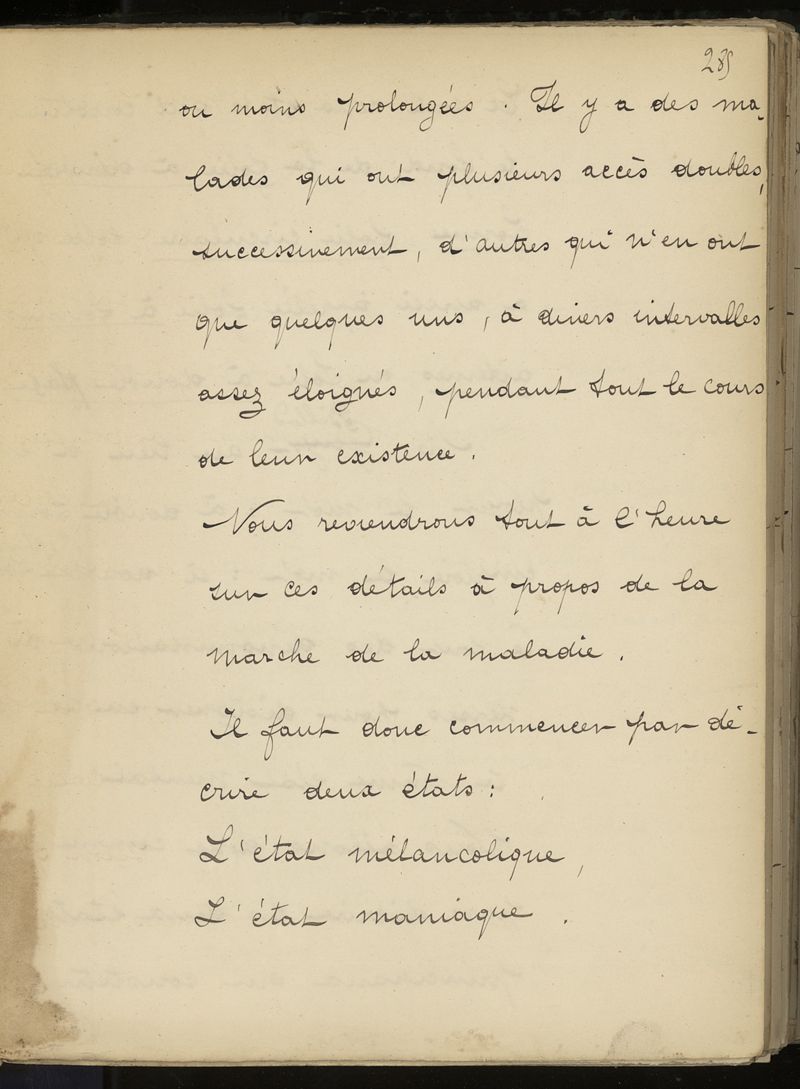 285
ou moins prolongées. Il y a des ma-
lades qui ont plusieurs accès doubles,
successivement, d'autres qui n'en ont
que quelques uns, à divers intervalles
assez éloignés, pendant tout le cours
de leur existence.
Nous reviendrons tout à l'heure
sur ces détails à propos de la
marche de la maladie.
Il faut donc commencer par dé-
crire deux états:
L'état mélancolique,
L'état maniaque.